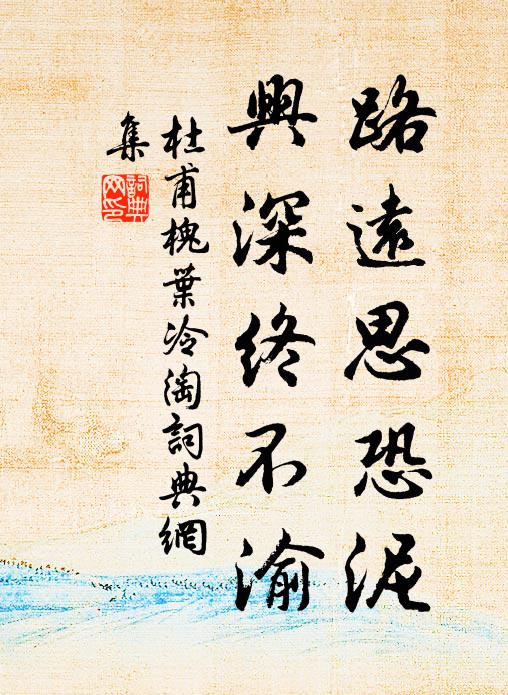 路遠思恐泥
興深終不渝
杜甫槐葉冷淘詞典網
集
詞典網印